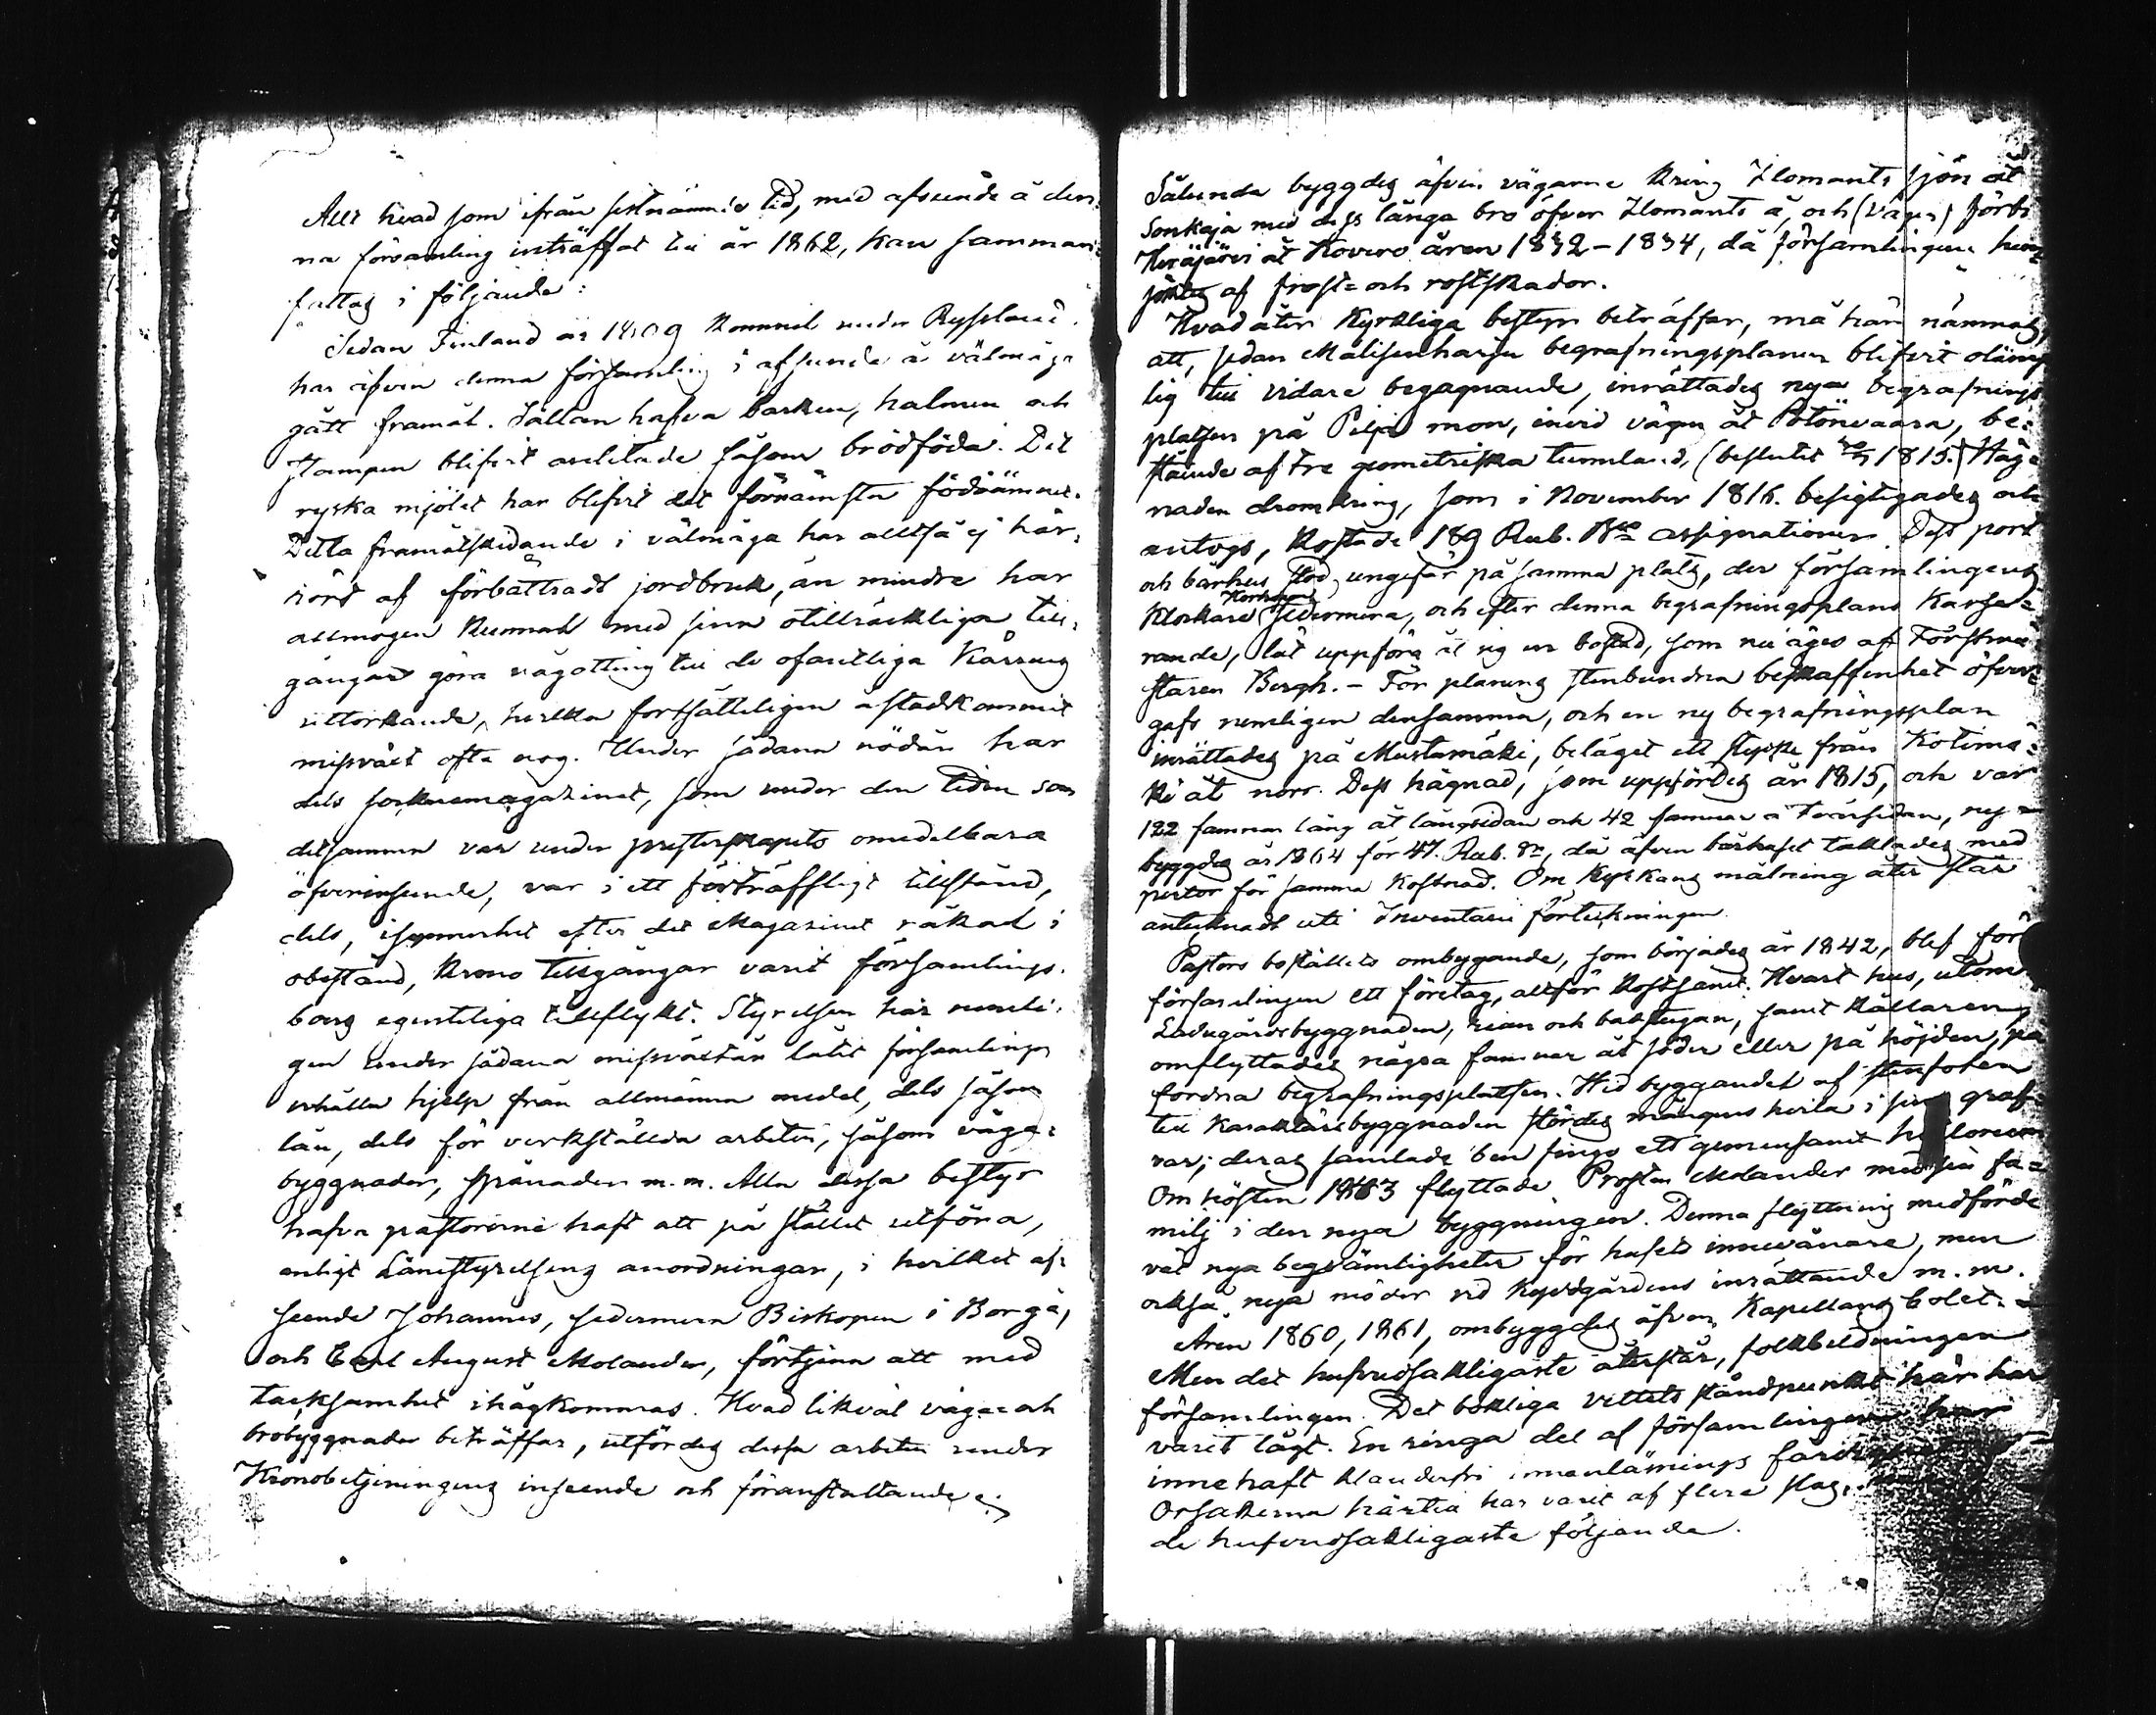 Allt hvad som ifrån sistnämnde tid, med afseende å den-
na församling inträffat till år 1862, kan samman-
fattas i följande:
Sedan Finland år 1809 kommit under Ryssland,
har äfven denna församling i afseende å välmåga
gått framåt. Sällan hafva barken, halmen och
stampen blifvit anlitade såsom brödföda. Det
ryska mjölet har blifvit det förnämsta födoämnet.
Detta framåtskridande i välmåga har alltså ej här-
rört af förbättradt jordbruk, än mindre har
allmogen kunnat med sina otillräckliga till-
gångar göra någotting till de ofantliga kärrens
uttorkande, hvilka fortsätteligen åstadkommit
missväxt ofta nog. Under sådana nödår har
dels socknemagazinet, som under den tiden som
detsamma var under presterskapets omedelbara
öfverinseende, var i ett förträffligt tillstånd,
dels, isynnerhet efter det Magazinet råkat i
obestånd, Krono tillgångar varit församlings-
boers egentliga tillflykt. Styrelsen har nemli-
gen under sådana missväxtår låtit församlingen
erhålla hjelp från allmänna medel, dels såsom
lån, dels för verkställda arbeten, såsom väga-
byggnader, spånader m.m. Alla dessa bestyr
hafva pastorerne haft att på stället utföra,
enligt Länestyrelsens anordningar, i hvilket af-
seende Johannes, sedermera Biskopen i Borgå,
och Carl August Molander, förtjena att med
tacksamhet ihågkommas. Hvad likväl väga- och
brobyggnader beträffar, utfördes dessa arbeten under
Kronobetjeningens inseende och föranstaltande.
Sålunda byggdes äfven vägarne kring Ilomants sjön åt
Sonkaja med dess långa bro öfver Ilomants å, och (vägen) förbi
åt Kovero åren 1832-1834, då församlingen hem-
söktes af frost- och rostskador.
Hvad åter kyrkliga bestyr beträffar, må här nämnas,
att, sedan Malisenharju begrafningsplanen blifvit olämp-
lig till vidare begagnande, inrättades nya begrafnings
platsen på mon, invid vägen åt Pötönvaara, be-
stående af tre geometriska tunnland, (beslutet 1815.) Häg-
naden deromkring, som i November 1816. besigtigades och
antogs, kostade 189 Rub. Bco assignationer. Dess port
och bårhus stod, ungefär på samma plats, der församlingens
Klockare sedermera, och efter denna begrafningsplans kasse-
rande, lät uppföra åt sig en bostad, som nu äges af Forstmä-
staren Bergh. - För planens stenbundna beskaffenhet öfver-
gafs nemligen densamma, och en ny begrafningsplan
inrättades på Mustamäki, beläget ett stycke från Kotima-
ki åt norr. Dess hägnad, som uppfördes år 1815, och var
122 famnar lång åt långsidan och 42 famnar å tvärsidan, ny-
byggdes år 1864 för 47. Rub. Sr, då äfven bårhuset täcktades med
pertor för samma kostnad. Om kyrkans målning åter står
antecknadt uti Inventarii förteckningen.
Pastors boställets ombyggande, som börjades år 1842, blef för
församlingen ett företag, alltför kostsamt. Hvart hus, utom
Ladugårdsbyggnaden, rian och badstugan, samt källaren,
omflyttades några famnar åt söder eller på höjden, på
fordna begrafningsplatsen. Vid byggandet af stenfoten
till Karaktärsbyggnaden stördes mångens hvila i sina graf-
var; deras samlade ben fingo ett gemensamt
Om hösten 1843 flyttade Prosten Molander med sin fa-
milj i den nya byggningen. Denna flyttning medförde
väl nya beqvämligheter för husets innevånare, men
också nya mödor vid kyrkgårdens inrättande m.m.
Åren 1860, 1861, ombyggdes äfven Kapellans bolet.
Men det hufvudsakligaste återstår, folkbildningen
församlingen. Det bokliga vettets ståndpunkt här har
varit lågt. En ringa del af församlingen har
innehaft klanderfri innanläsnings
Orsakerna härtill har varit af flera slag,
de hufvudsakligaste följande.